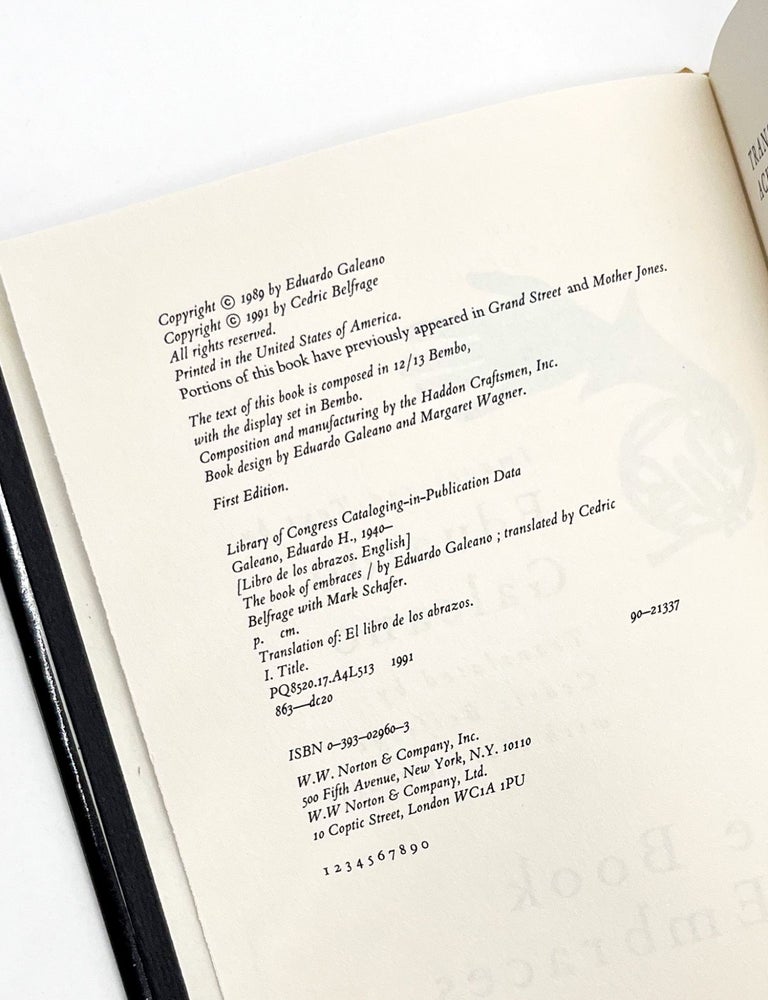 Copyright © 1989 by Eduardo Galeano
Copyright © 1991 by Cedric Belfrage
All rights reserved.
Printed in the United States of America.
Portions of this book have previously appeared in Grand Street and Mother Jones.
The text of this book is composed in 12/13 Bembo,
with the display set in Bembo.
Composition and manufacturing by the Haddon Craftsmen, Inc.
Book design by Eduardo Galeano and Margaret Wagner.
First Edition.
Library of Congress Cataloging-in-Publication Data
Galeano, Eduardo H., 1940–
[Libro de los abrazos. English]
The book of embraces / by Eduardo Galeano ; translated by Cedric
Belfrage with Mark Schafer.
p. cm.
Translation of: El libro de los abrazos.
I. Title.
PQ8520.17.A4L513 1991
863—dc20 90–21337
ISBN 0–393–02960–3
W.W. Norton & Company, Inc.
500 Fifth Avenue, New York, N.Y. 10110
W.W Norton & Company, Ltd.
10 Coptic Street, London WC1A 1PU
1 2 3 4 5 6 7 8 9 0